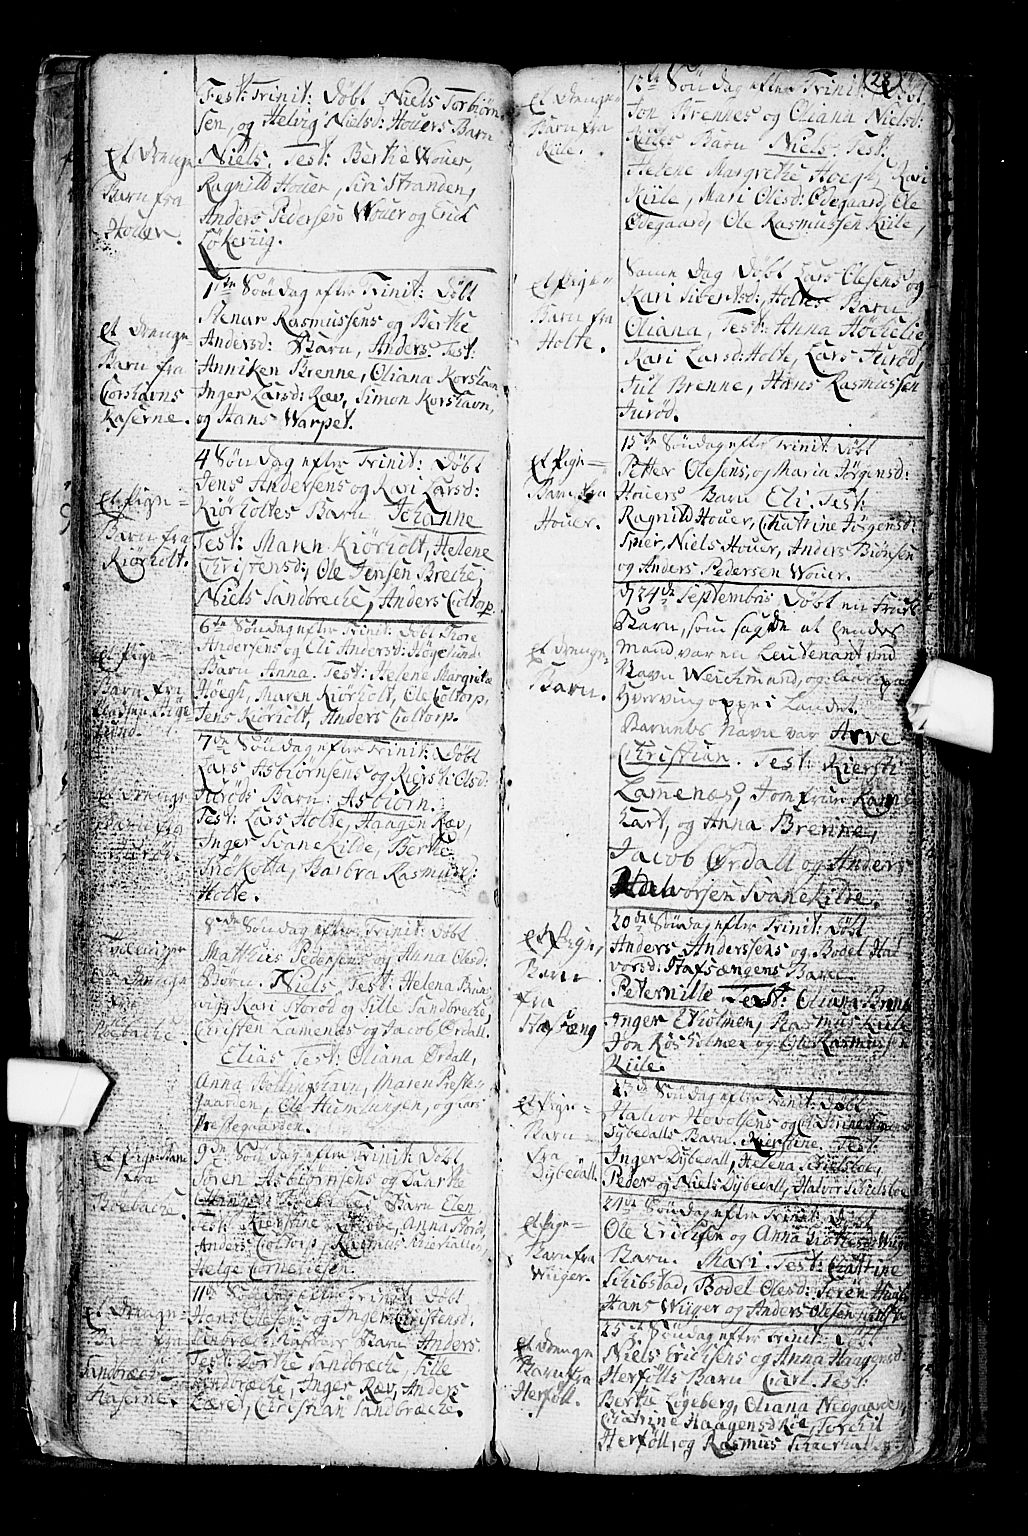 Fest: Trinit: Döbt Niels Torbiörn
sen, og Helvig Nielsd: Houers Barn
Niels, Test: Berthe Wouer,
Ragnild Houer, Siri Stranden,
Anders Pedersen Wouer og Erich
Lökevig.
Et Drenge
Barn fra
Houer.
1ste Söndag efter Trinit: Döbt
Stenar Rasmussens og Berthe
Andersd: Barn, Anders. Test:
Anniken Brenne, Oliana Korshavn
Inger Larsd: Ræv, Simon Korshavn,
og Hans Warpet.
et Drenge
Barn fra
Corshavns
Kaserne.
4 Söndag efter Trinit: Döbt
Jens Andersens og Kari Larsd:
Kiörholtes Barn Johanne
Test: Maren Kiörholt, Helene
Christensd:, Ole Jensen Breche,
Niels Sandbreche, Anders Coltorp.
et Pige=
Barn fra
Kiörholt.
6te Söndag efter Trinit: Döbt Thore
Andersens og Eli Andersd: Högesunds
Barn Anna. Test: Helene Margrethe
Hoegh, Maren Kiörholt, Ole Coltorp,
Jens Kiörholt, Anders Coltorp.
et Pige=
Barn fra
7de Söndag efter Trinit: Döbt
Lars Asbiörnsens og Kiersti Olsd:
Barn: Asbiörn.
Test: Lars Holte, Haagen Ræv,
Inger Svanekilde, Berthe
Snökolla, Barbra Rasmusd:
Holte.
et Drenge
Barn fra
8de Söndag efter Trinit: Döbt
Mathias Pedersens og Anna Olesd:
Börn. Niels, Test: Helena
Kari Storöd og Sille Sandbreche,
Christen Lamenæs og Jacob Ørdall.
Elias Test: Oliana Ørdall,
Anna Bottingshavn, Maren Preste-
gaarden, Ole Humlungen, og Lars
Prestegaarden.
Tvillinger
Drenge
Boebache.
9de Söndag efter Trinit: Döbt
Sören Asbiörnsens og Dorthe
Barn Elen
Test: Kierstine Anna Storöd,
Anders Coltorp, Rasmus
Helge Corneliesen.
et Pige Barn
fra
Boebache.
11te Söndag efter Trinit: Döbt
Hans Olesens og Inger Christensd:
Barn Anders.
Test: Dorthe Sandbreche, Sille
Sandbreche, Inger Ræv, Anders
Læret, Christian Sandbreche.
et Drenge=
Barn fra
Sandbræch=
Kaserne.
28
13te Söndag efter Trinit: Döbt
Jon Brennes og Oliana Nielsd:
Kiile Barn Niels. Test:
Helene Margrethe Hoegh, Kari
Kiile, Mari Olesd: Ødegaard, Ole
Ødegaard, Ole Rasmussen Kiile,
et Drenge
Barn fra
Kiile.
Samme Dag Döbt Lars Olesens og
Kari Sivertsd: Holtes Barn
Oliana, Test: Anna Höchelie
Kari Larsd: Holte, Lars Auröd,
Jul Brenne, Hans Rasmussen
Auröd.
et Pige=
Barn fra
Holte.
15te Söndag efter Trinit: Döbt
Petter Olesens, og Maria Jörgensd:
Houers Barn Eli. Test:
Ragnild Houer, Chatrine Jörgensd:
Spier, Niels Houer, Anders Biönsen
og Anders Pedersen Wouer.
et Pige=
Barn fra
Houer.
d: 24de Septembris Döbt en Frues
Barn, som sagde at hendes
Mand var en Leutenant ved
Navn Weichmand, og laae paa
Hverving oppe i Landet.
Barnets Navn var Arve
Christian. Test: Kiersti
Lamenæs, Jomfrue Ram
hart, og Anna Brenne,
Jacob Ørdall og Anders
Halvorsen Svanekilde.
et Drenge=
Barn.
20de Söndag efter Trinit: Döbt
Anders Anderssens og Bodel Hal
vorsd: Stafsængens Barn
Peternille Test: Oliana Brenne
Inger Ekholmen, Rasmus Kiile
Jon Rösholmen og Ole Rasmussen
Kiile.
et Pige,
Barn
fra
Stafsæng
Söndag efter Trinit: Döbt
Halvor Hovelsens og Chatrine
Dybedalls Barn. Kierstine. Test:
Inger Dybedall, Helena Skielsboe,
Peder og Niels Dybedall, Halvor Skielsboe
et Pige=
Barn=
fra
Dybedall.
24de Söndag efter Trinit: Döbt
Ole Erichsen og Anna Wiiger
Barn. Mari. Test: Chatrine
Skibstad, Bodel Olesd: Sören
Hans Wiiger og Anders Olesen
et Pige=
Barn fra
Wiiger.
25de Söndag efter Trinit: Döbt
Niels Erichsens og Anna Haagensd:
Herfölls Barn Carl. Test:
Berthe Lögeberg, Oliana Nedgaarden,
Chatrine Haagensd: Röe, Torchil
Herföll, og Rasmus Skiærhallen.
et Drenge
Barn fra
Herföll.